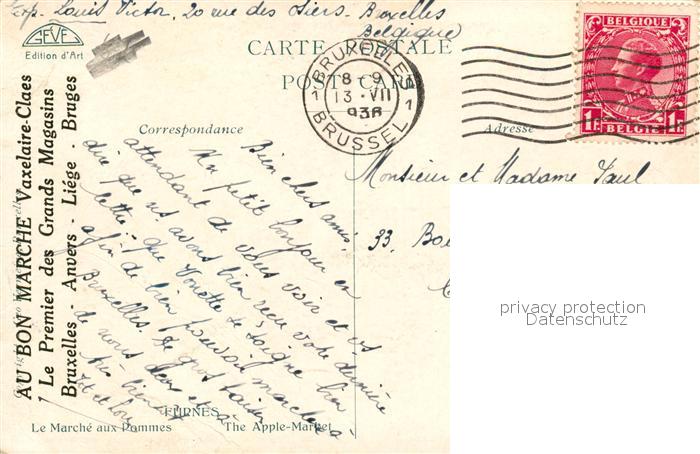 Exp. Louis Victor, 20 rue des Liers - Bruxelles
Belgique
GEVE
Edition d'Art
CARTE POSTALE
POST CARD
BRUXELLES
8-9
1 13·VII 1
1936
BRUSSEL
BELGIQUE
1F 1F
BELGIE
AU BON MARCHE Vaxelaire-Claes
Le Premier des Grands Magasins
Bruxelles - Anvers - Liége - Bruges
Correspondance
Adresse
Monsieur et Madame Paul
33.
Bien chers amis.
Un petit bonjour en
attendant de vous voir et vs
dire que ns avons bien reçu votre dernière
lettre. Que Tonette se soigne bien
afin de bien pouvoir marcher à
Bruxelles. De gros baisers
de nous deux et à
très bientôt
FURNES
Le Marché aux Pommes
The Apple-Market
privacy protection
Datenschutz